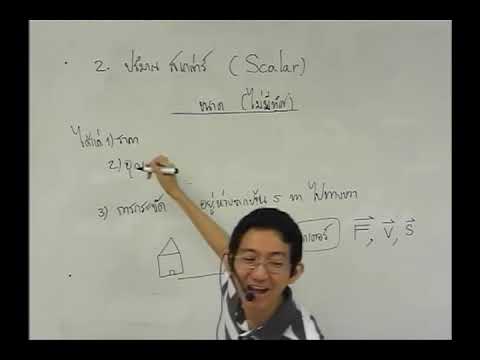 2. ปริมาณ สเกล่าร์ (Scalar)
ขนาด (ไม่มีทิศ)
ได้แก่ 1) ราคา
2) อุณ
3) การกระขัด อยู่ห่างจากบ้าน 5 ไปทางขวา
F, V, S